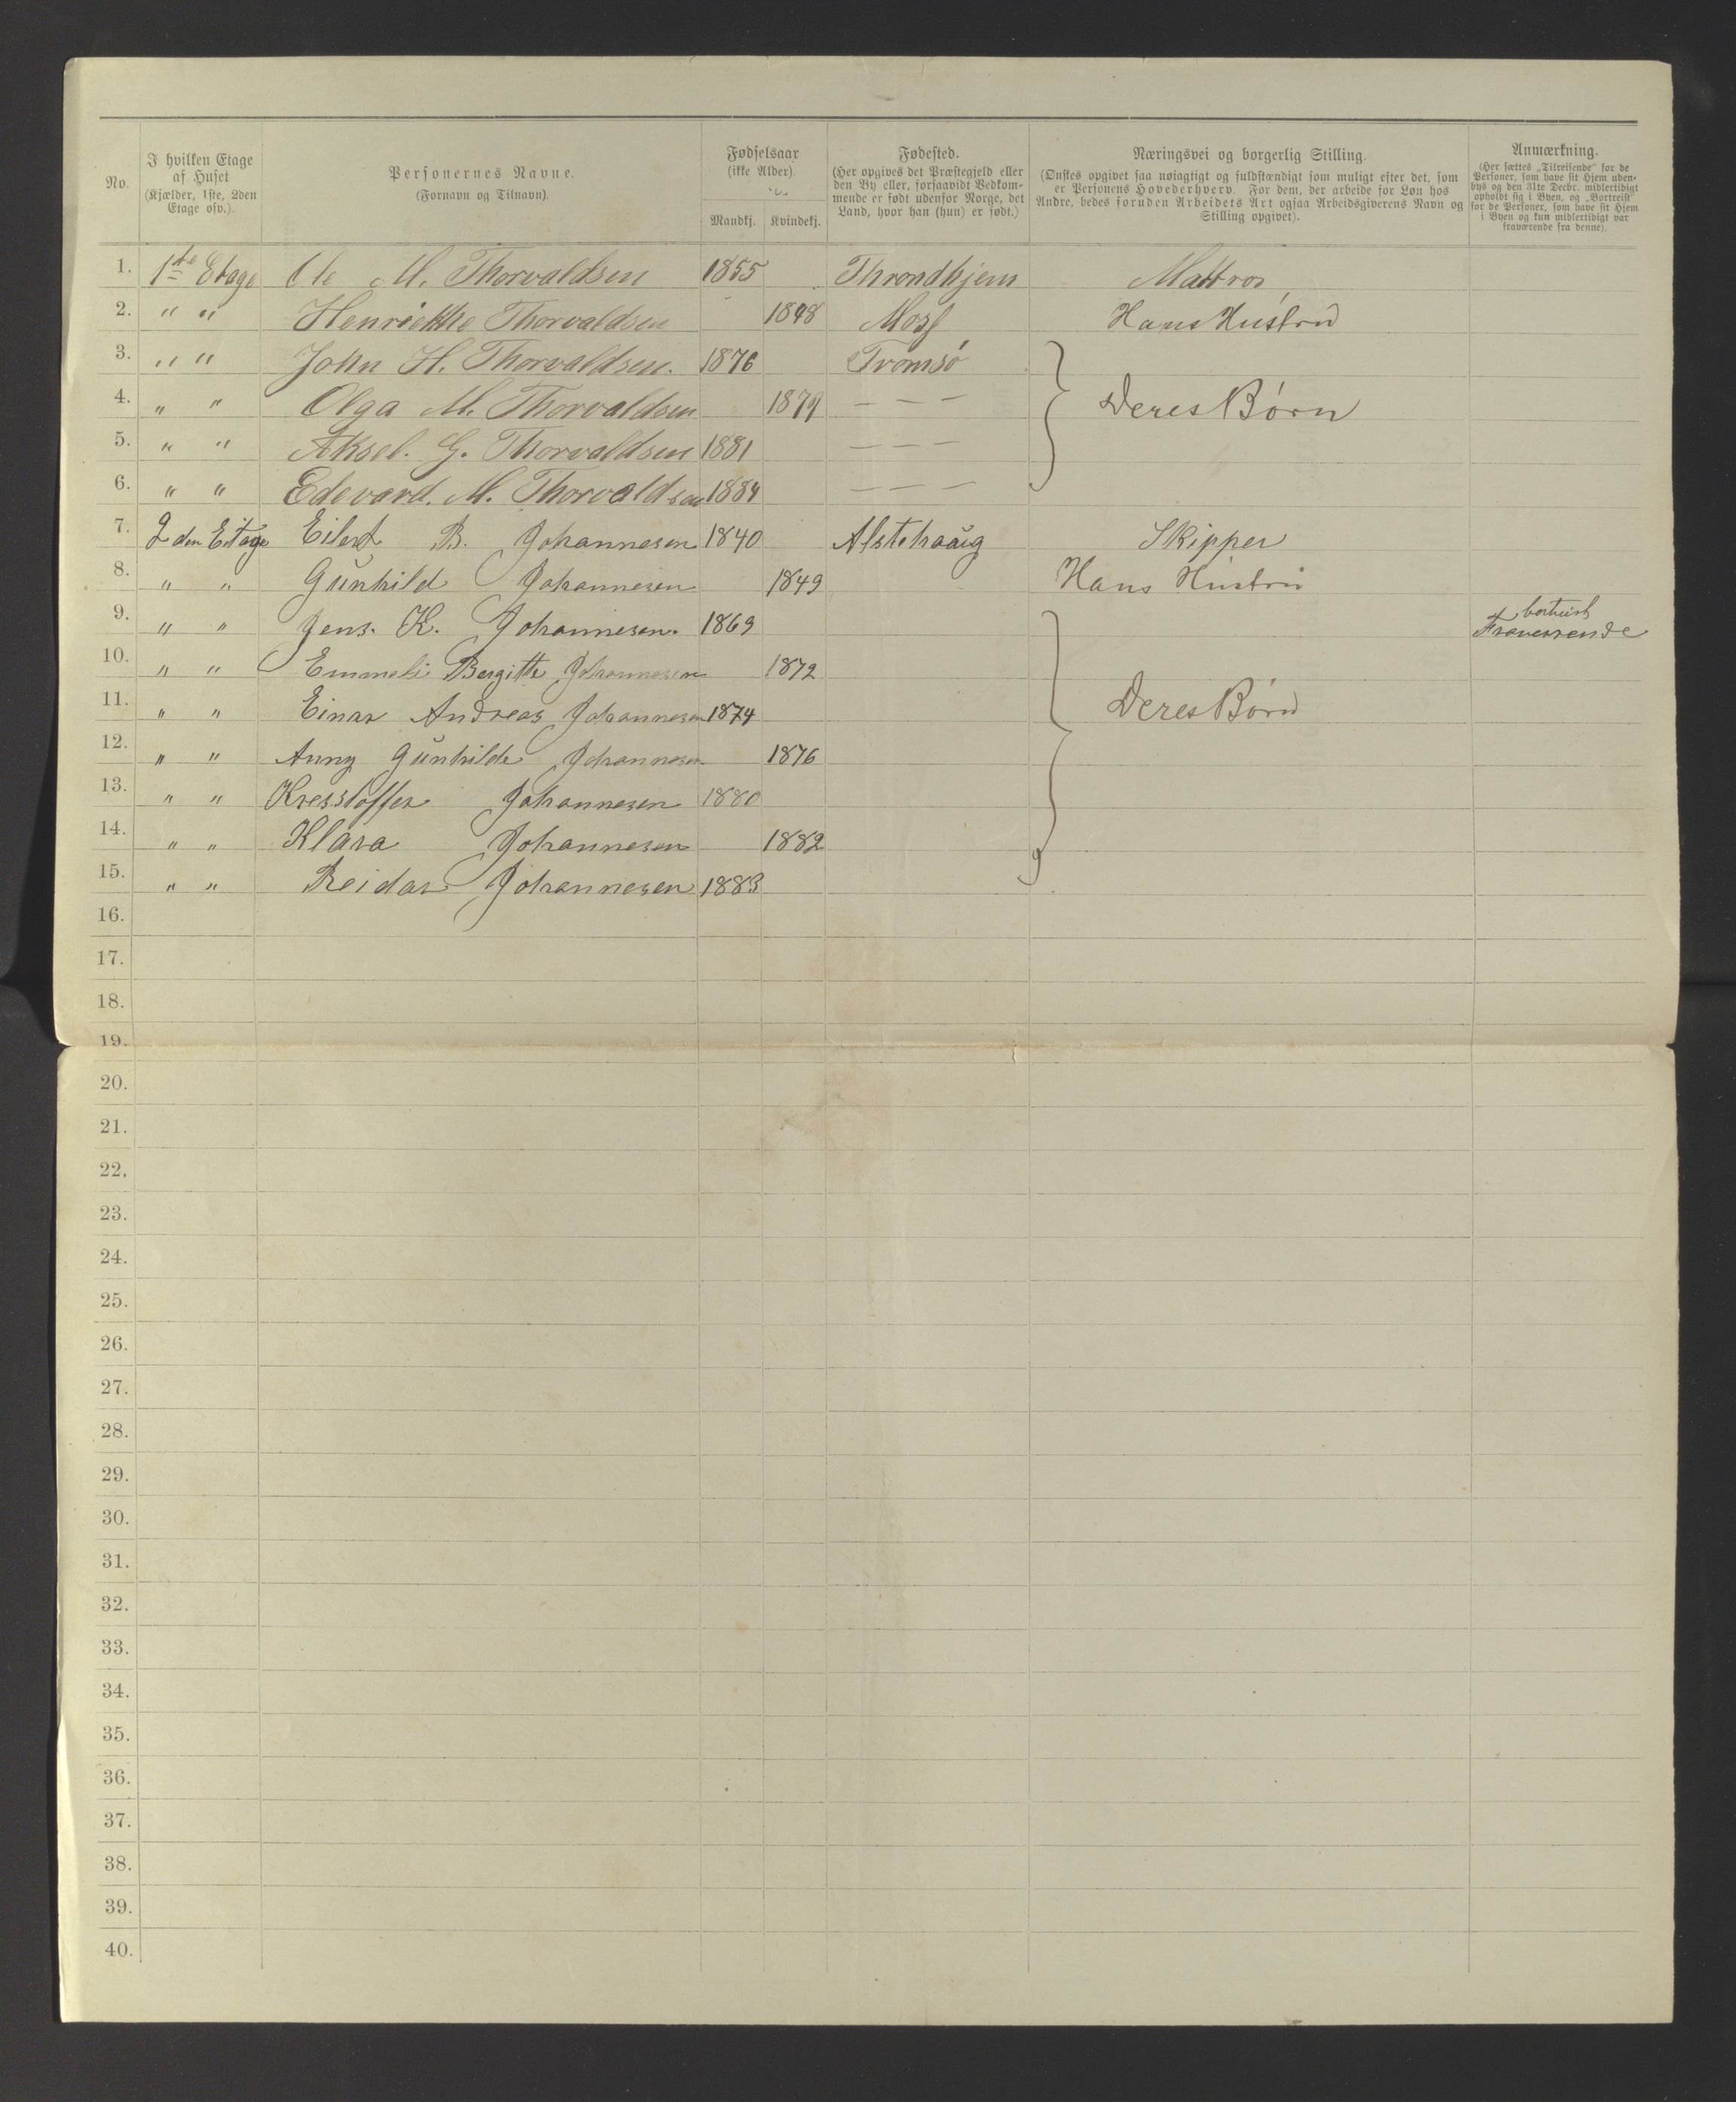 No.
I hvilken Etage
af Huset
(Kjælder, 1ste, 2den
Etage osv.).
Personernes Navne.
(Fornavn og Tilnavn).
Fødselsaar
(ikke Alder).
Mandkj. Kvindekj.
Fødested.
(Her opgives det Præstegjeld eller
den By eller, forsaavidt Vedkom-
mende er født udenfor Norge, det
Land, hvor han (hun) er født.)
Næringsvei og borgerlig Stilling.
(Ønskes opgivet saa nøiagtigt og fuldstændigt som muligt efter det, som
er Personens Hovederhverv. For dem, der arbeide for Løn hos
Andre, bedes foruden Arbeidets Art ogsaa Arbeidsgiverens Navn og
Stilling opgivet).
Anmærkning.
(Her sættes „Tilreisende" for de
Personer, som have sit Hjem uden-
bys og den 31te Decbr. midlertidigt
opholdt sig i Byen, og „Bortreist"
for de Personer, som have sit Hjem
i Byen og kun midlertidigt var
fraværende fra denne).
1. 1ste Etage Ole M. Thorvaldsen 1855 Throndhjem Mattros
2. " " Henriekthe Thorvaldsen 1848 Moss Hans Hustru
3. " " John H. Thorvaldsen. 1876 Tromsø
4. " " Olga M. Thorvaldsen 1879 — — — Deres Børn
5. " " Aksel. G. Thorvaldsen 1881 — — —
6. " " Edevard. M. Thorvaldsen 1884 — — —
7. 2den Etage Eilert B. Johannesen 1840 Alstehaaug Skipper
8. " " Gunhild Johannesen 1849 Hans Hustru
9. " " Jens. K. Johannesen. 1869 bortreist
Fraverende
10. " " Emmeli Bergitte Johannesen 1872
11. " " Einar Andreas Johannesen 1874 Deres Børn
12. " " Anny Gunhilde Johannesen 1876
13. " " Kresstoffer Johannesen 1880
14. " " Klara Johannesen 1882
15. " " Reidar Johannesen 1883
16.
17.
18.
19.
20.
21.
22.
23.
24.
25.
26.
27.
28.
29.
30.
31.
32.
33.
34.
35.
36.
37.
38.
39.
40.